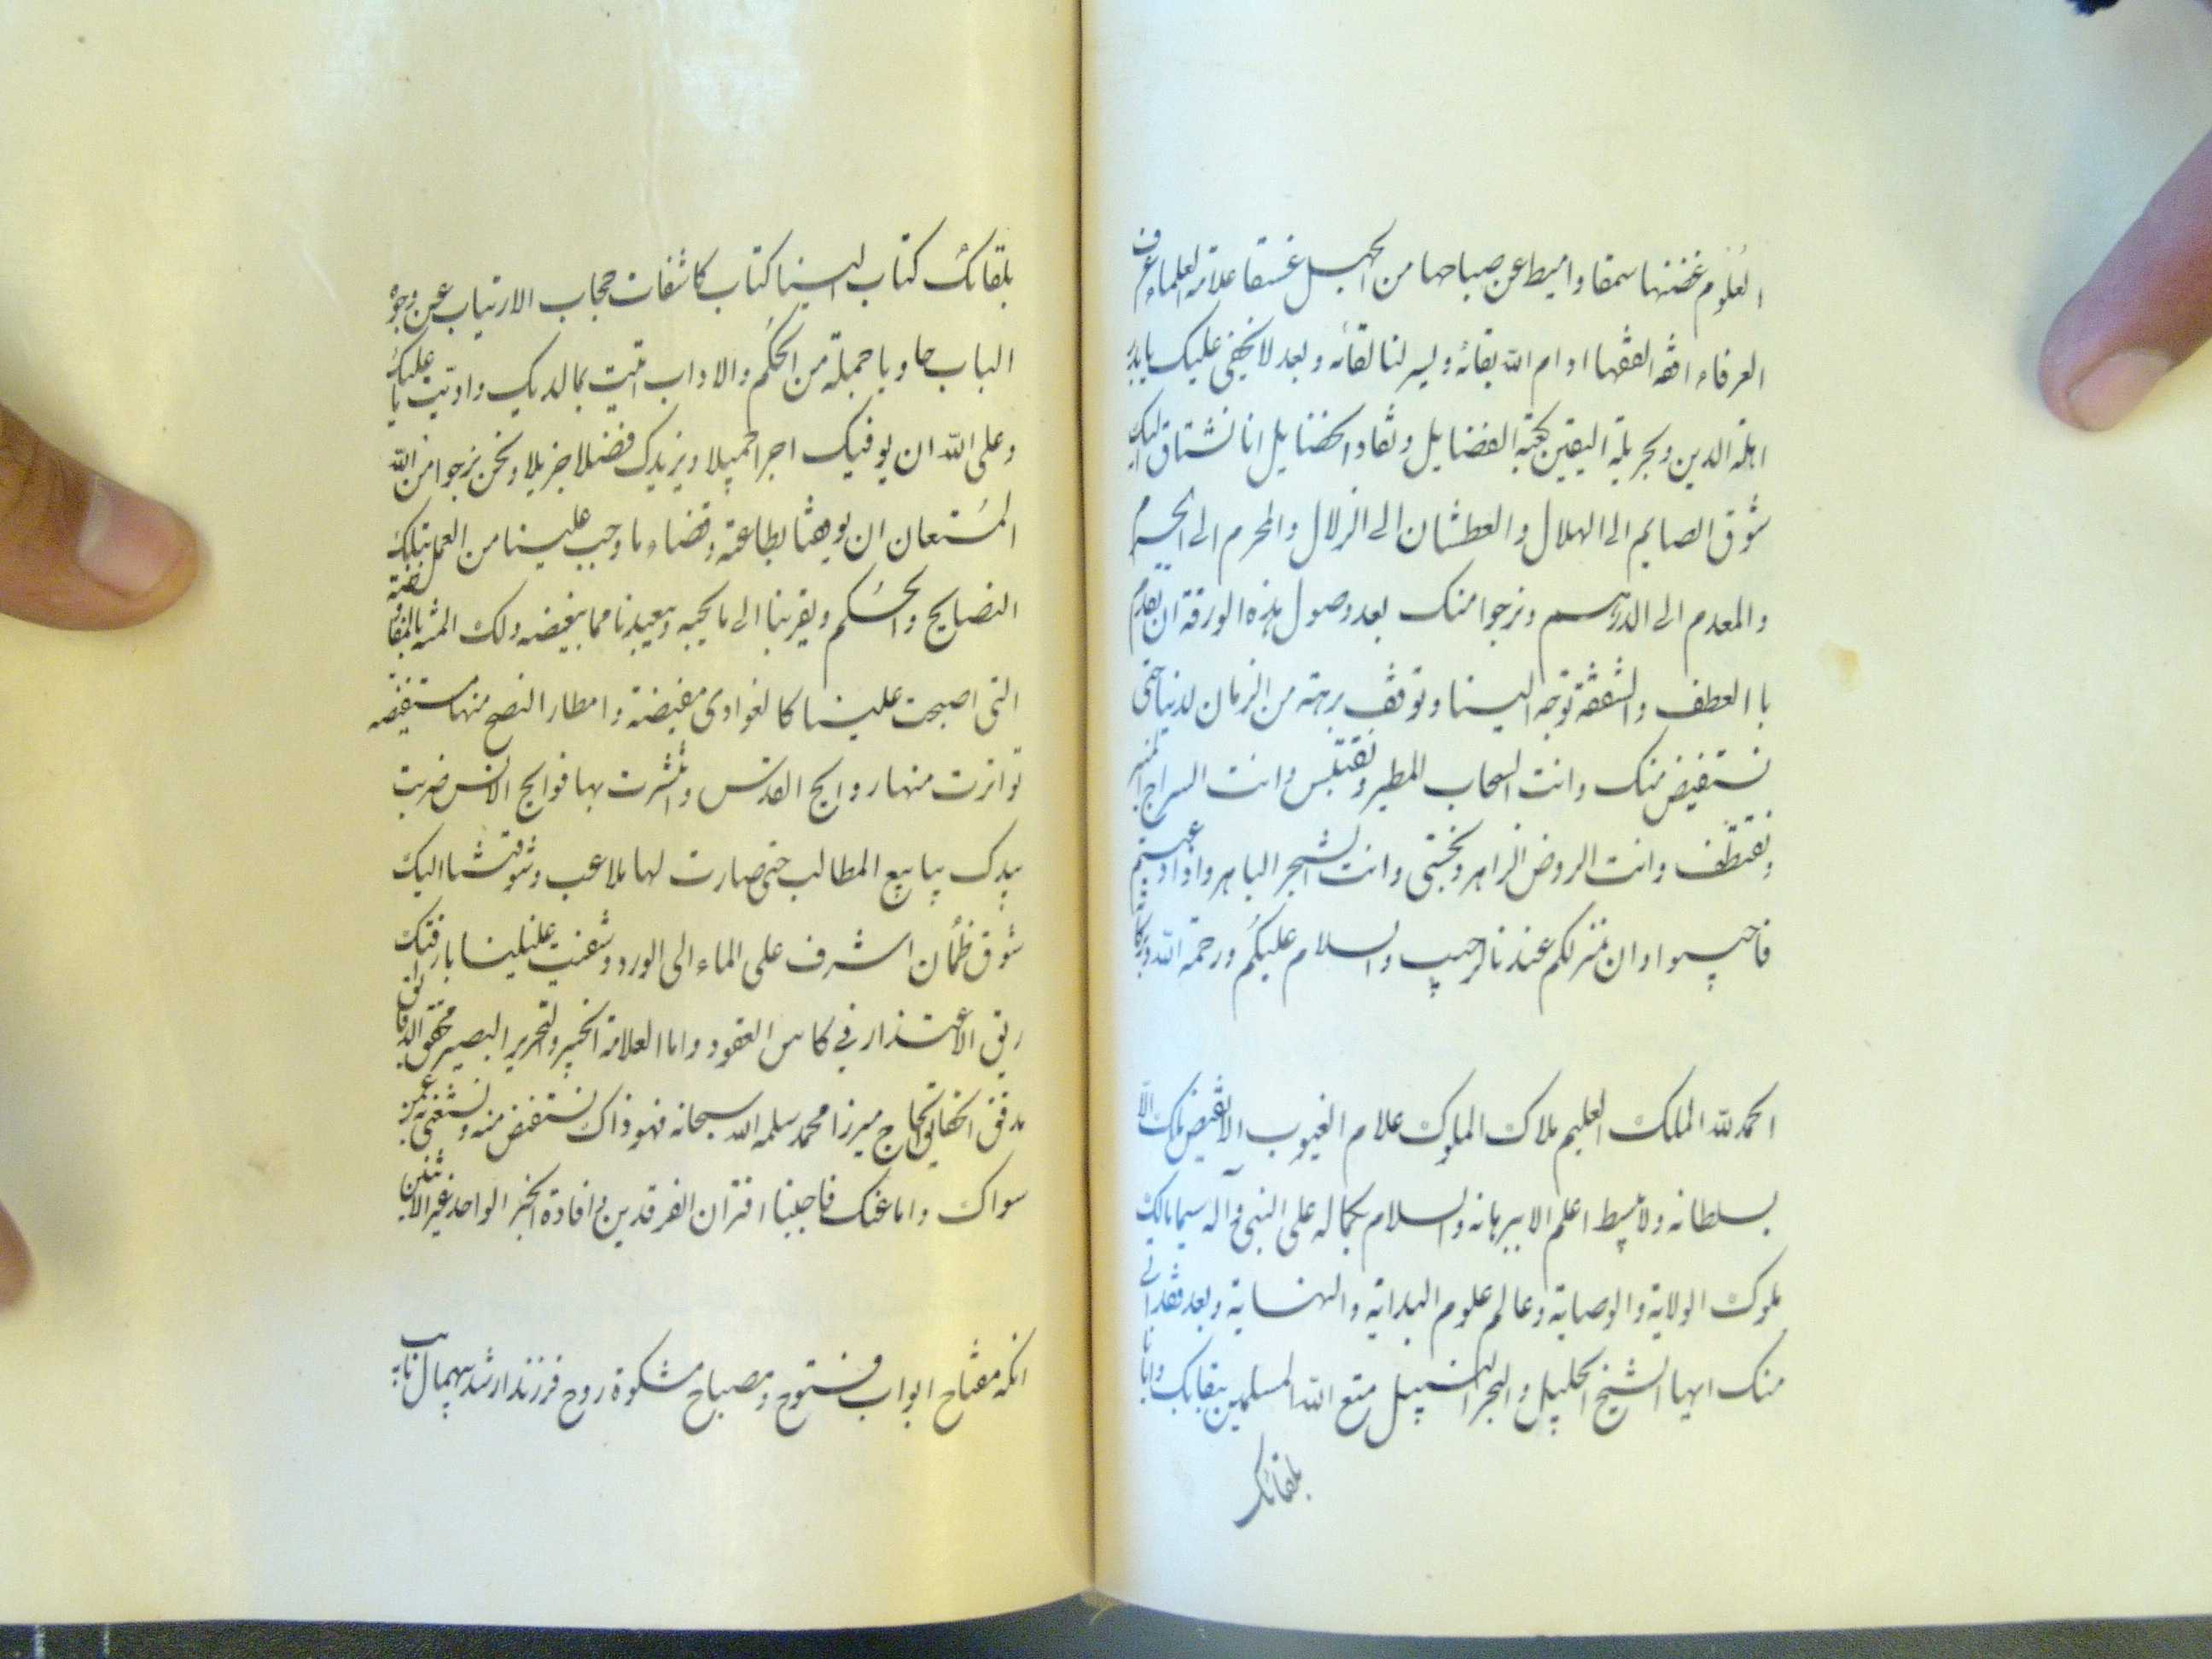 العلوم غضنها سمقا واميط عن صباحها من الجهل غسقا علامة العلماء عرف
العرفاء افقه الفقها ادام الله بقائه ويسر لنا لقائه وبعد لا يخفى عليك يا بدر
اهلة الدين وبحر بلة اليقين كعبة الفضايل ونقاد الخضايل انا نشتاق اليك
شوق الصايم الى الهلال والعطشان الى الزلال والمحرم الى الحرم
والمعدم الى الدرهم ونرجوا منك بعد وصول هذه الورقة ان تقدم
با العطف والشفقة توجه الينا وتوقف برهة من الزمان لدنيا حتى
نستفيض منك وانت السحاب المطير ونقتبس وانت السراج المنير
ونقتطف وانت الروض الزاهر ونجتنى وانت الشجر الباهر واذا دعيتم
فاجيبوا وان منزلكم عندنا لرحيب والسلام عليكم ورحمة الله وبركاته
الحمد لله الملك العليم ملاك الملوك علام الغيوب الا لقيض ملك الا
بسلطانه ولا ميط اعلم الا ببرهانه والسلام بكماله على النبى وآله سيما مالك
ملوك الولاية والوصاية وعالم علوم البداية والنهاية وبعد فقد اتى
منك ايها الشيخ الجليل والبحر النبيل متع الله المسلمين ببقايك وايانا
بلقائك
بلقائك كتاب الينا كتاب كاشفات حجاب الارتياب عن وجوه
الباب حاويا جملة من الحكم والاداب اتيت بما لديك واديت ما عليك
وعلى الله ان يوفيك اجرا جميلا ويزيدك فضلا جزيلا ونحن نرجوا من الله
المستعان ان يوفقنا بطاعته وقضاء ما وجب علينا من العمل بتلك
النصايح والحكم ويقربنا الى ما يحبه ويبعدنا مما يبغضه ولك المنة بالمفاوضة
التى اصبحت علينا كالغوادى مفيضة وامطار النصح منها مستفيضه
تواترت منها روايح القدس وانتشرت بها فوايح الانس ضربت
بيدك ينابيع المطالب حتى صارت لها ملاعب وشوقتنا اليك
شوق ظمأن اشرف على الماء الى الورود وشفيت غليلنا بارقتك
ريق الاعتذار فى كاس العقود واما العلامة الخبير والنحرير البصير محقق الدقايق
مدقق الحقايق الحاج ميرزا محمد سلمه الله سبحانه فهو ذاك نستفيض منه ونستغنى به عمن
سواك واما عنك فاجبنا اقتران الفرقدين وافادة الخبر الواحد غير الاثنين
انكه مفتاح ابواب فتوح ومصباح مشكوة روح فرزند ارشد بيهمال ناب